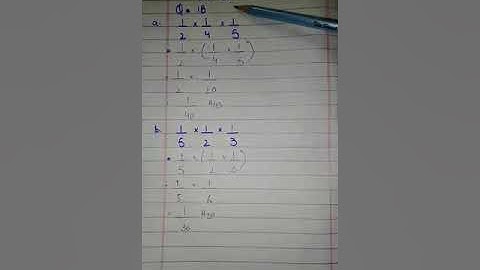 Q = 1B
a. 1/2 × 1/4 × 1/5
= 1/2 × (1/4 × 1/5)
= 1/2 × 1/20
= 1/40 Ans
b. 1/5 × 1/2 × 1/3
= 1/5 × (1/2 × 1/3)
= 1/5 × 1/6
= 1/30 Ans